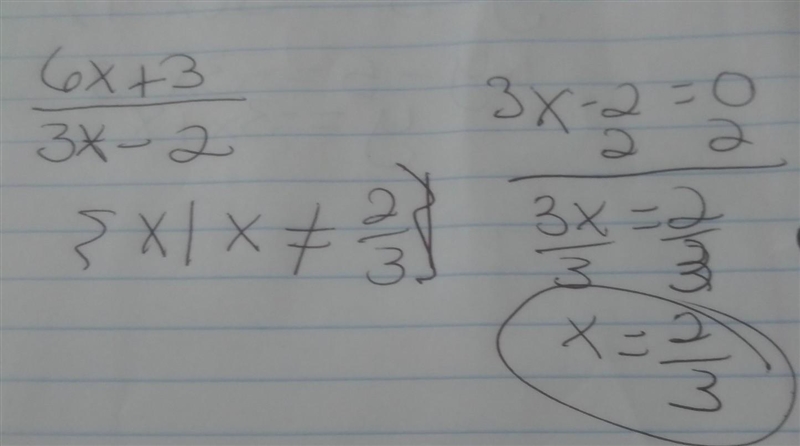 6x+3
3x-2
{x|x ≠ 2/3}
3x-2=0
2 2
3x/3 = 2/3
x = 2/3